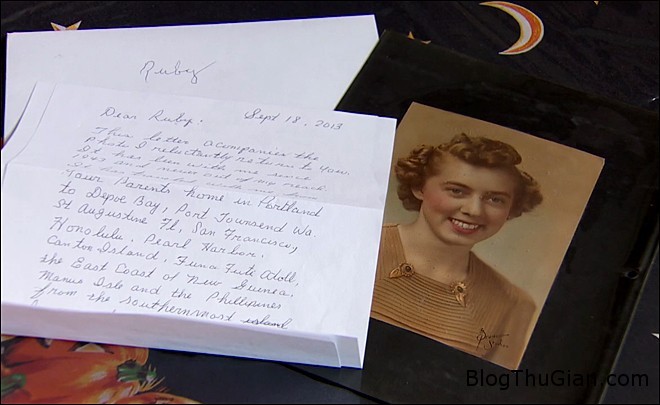 Ruby
Dear Ruby. Sept 18, 2013
This letter acompanies the
photo I reluctantly return to you.
It has been with me since
1943 and never out of my reach
It has traveled with me from
Your Parents home in Portland
to Depoe Bay, Port Townsend Wa
St Augustine Fl, San Francisco,
Honolulu. Pearl Harbor.
Canton Island, Funa Fute Atoll,
the East Coast of New Guinea,
Manus Isle and the Phillipines
from the southernmost island
BlogThuGian.com